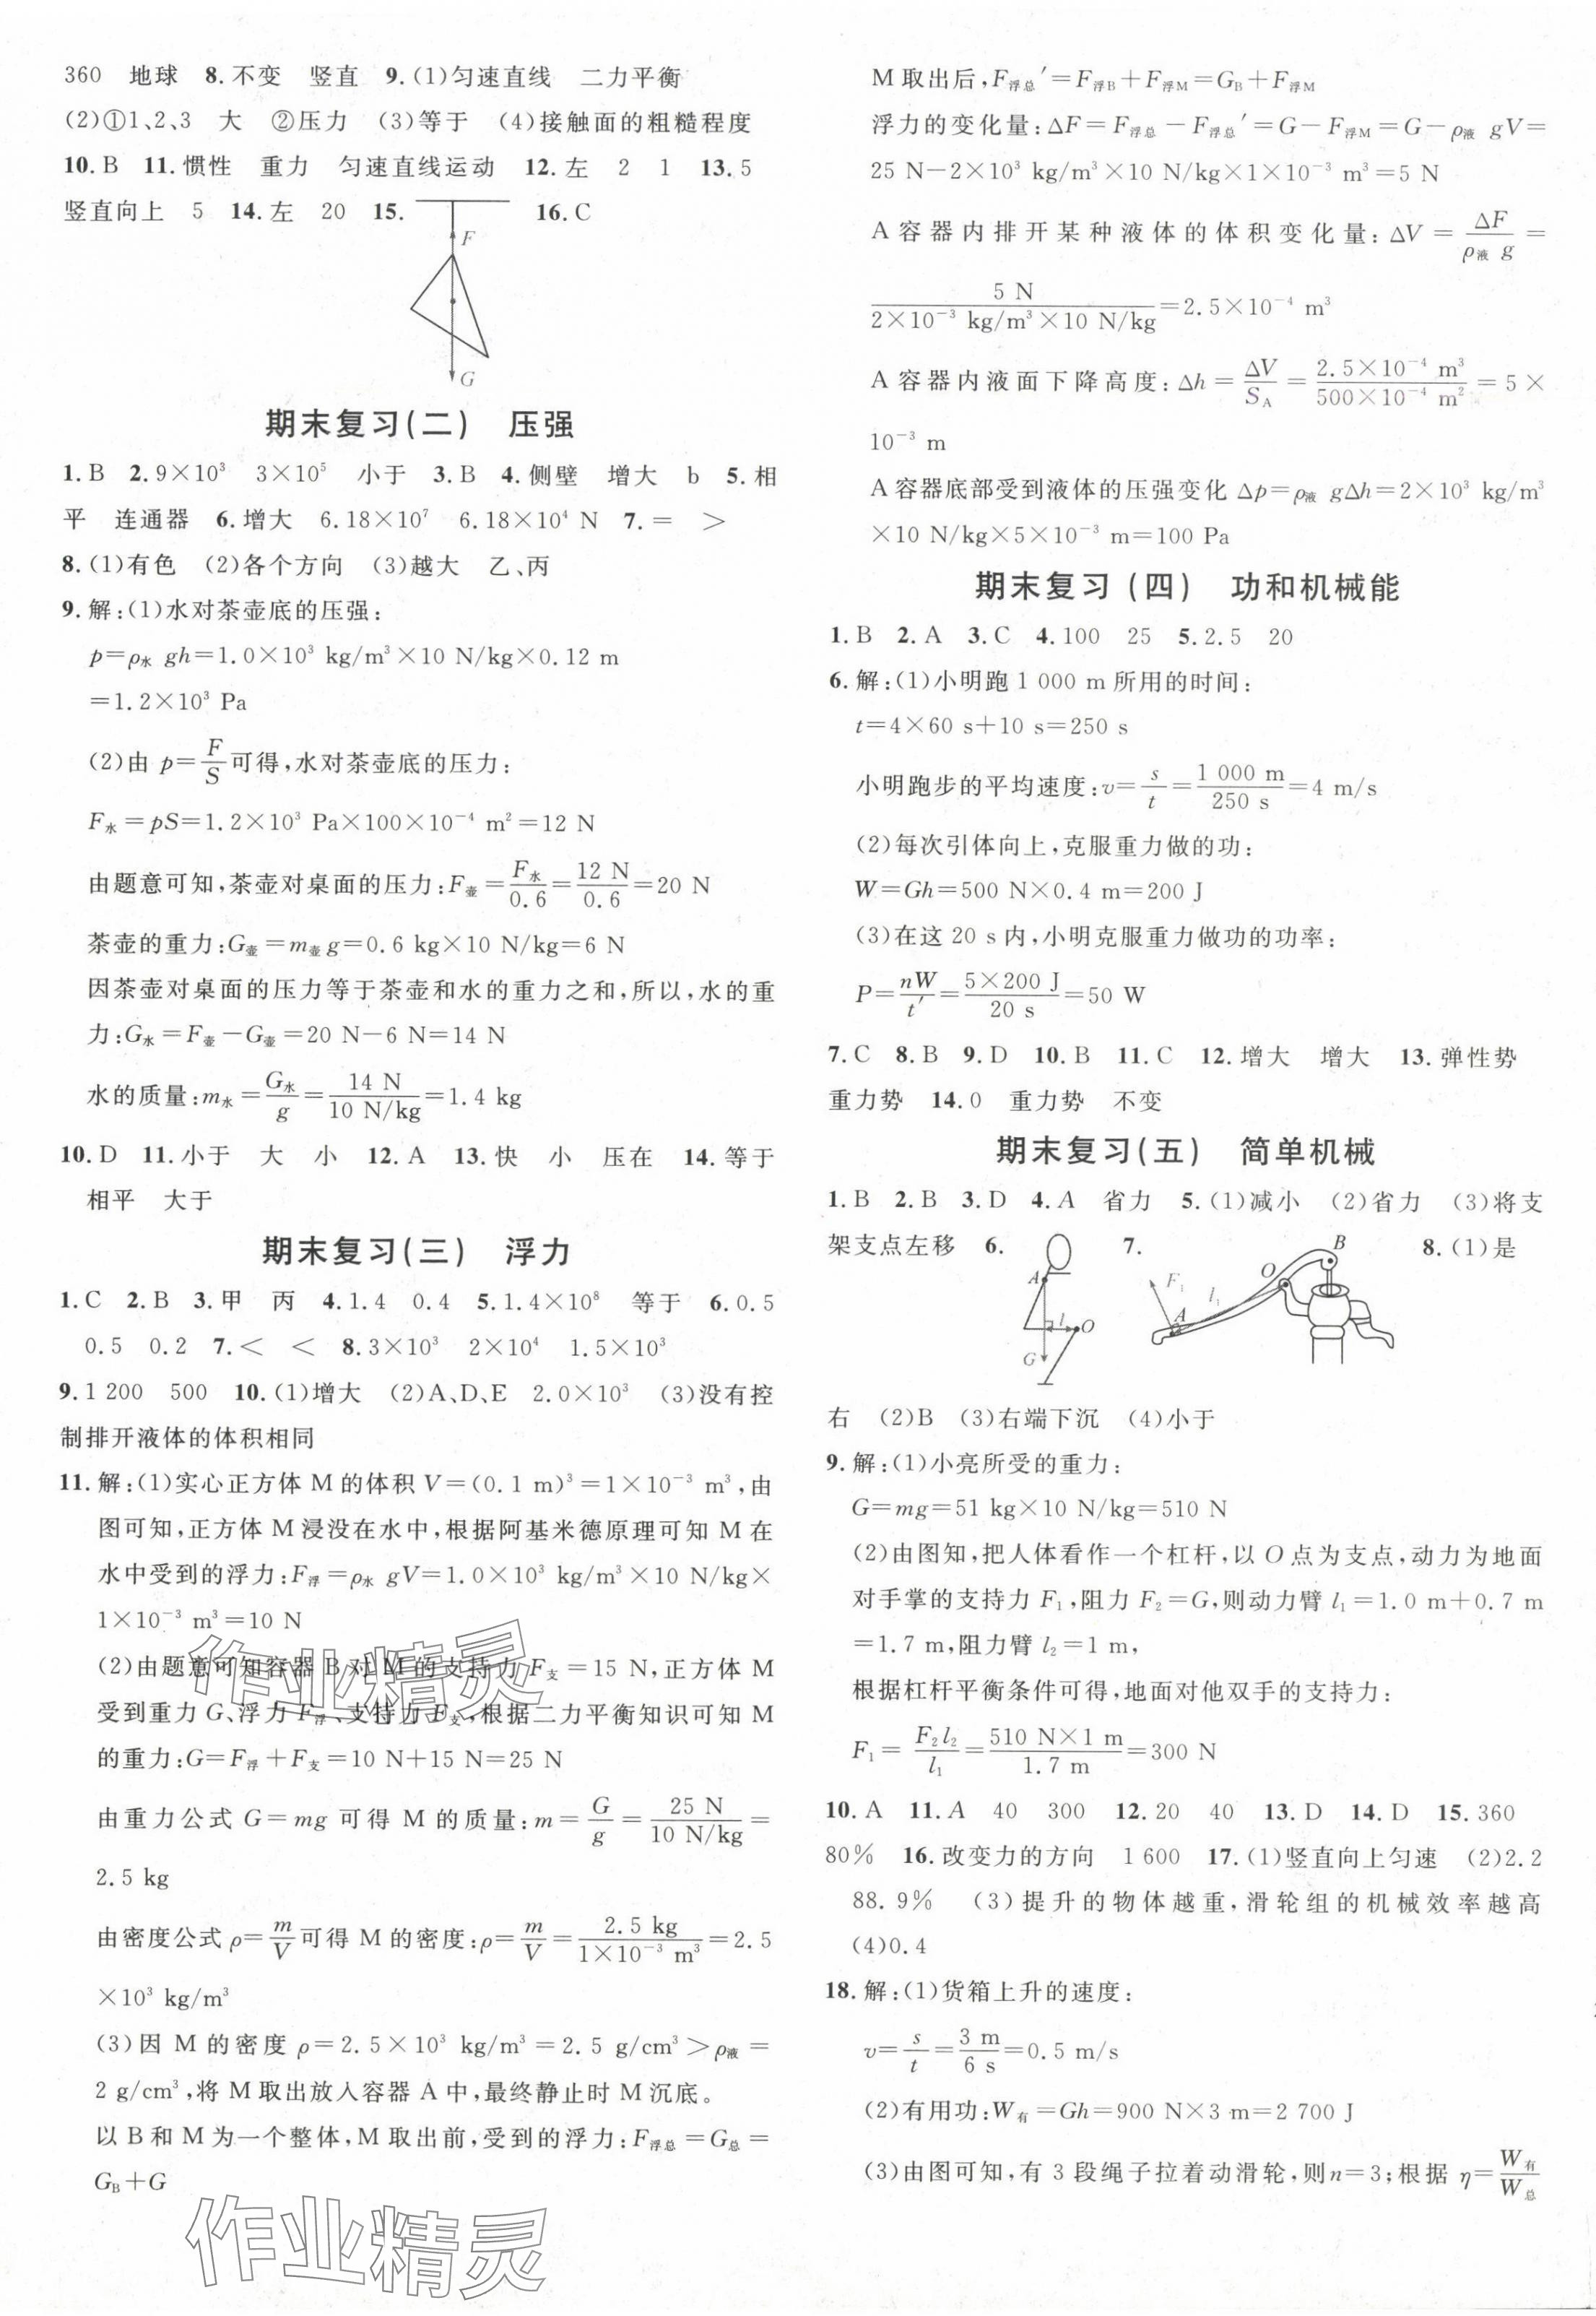 360　地球　8.不变　竖直　9.(1)匀速直线　二力平衡
(2)①1、2、3　大　②压力　(3)等于　(4)接触面的粗糙程度
10.B　11.惯性　重力　匀速直线运动　12.左　2　1　13.5
竖直向上　5　14.左　20　15.　16.C
F
G
期末复习(二)　压强
1.B　2.9×10³　3×10⁵　小于　3.B　4.侧壁　增大　b　5.相
平　连通器　6.增大　6.18×10⁷　6.18×10⁴ N　7.=　>
8.(1)有色　(2)各个方向　(3)越大　乙、丙
9.解:(1)水对茶壶底的压强:
p=ρ水 gh=1.0×10³ kg/m³×10 N/kg×0.12 m
=1.2×10³ Pa
(2)由 p=F/S可得,水对茶壶底的压力:
F水=pS=1.2×10³ Pa×100×10⁻⁴ m²=12 N
由题意可知,茶壶对桌面的压力:F壶=F水/0.6=12 N/0.6=20 N
茶壶的重力:G壶=m壶g=0.6 kg×10 N/kg=6 N
因茶壶对桌面的压力等于茶壶和水的重力之和,所以,水的重
力:G水=F壶-G壶=20 N-6 N=14 N
水的质量:m水=G水/g=14 N/10 N/kg=1.4 kg
10.D　11.小于　大　小　12.A　13.快　小　压在　14.等于
相平　大于
期末复习(三)　浮力
1.C　2.B　3.甲　丙　4.1.4　0.4　5.1.4×10⁸　等于　6.0.5
0.5　0.2　7.<　<　8.3×10³　2×10⁴　1.5×10³
9.1 200　500　10.(1)增大　(2)A、D、E　2.0×10³　(3)没有控
制排开液体的体积相同
11.解:(1)实心正方体 M 的体积 V=(0.1 m)³=1×10⁻³ m³,由
图可知,正方体 M 浸没在水中,根据阿基米德原理可知 M 在
水中受到的浮力:F浮=ρ水 gV=1.0×10³ kg/m³×10 N/kg×
1×10⁻³ m³=10 N
(2)由题意可知容器 B 对 M 的支持力 F支=15 N,正方体 M
受到重力 G、浮力 F浮、支持力 F支,根据二力平衡知识可知 M
的重力:G=F浮+F支=10 N+15 N=25 N
由重力公式 G=mg 可得 M 的质量:m=G/g=25 N/10 N/kg=
2.5 kg
由密度公式ρ=m/V可得 M 的密度:ρ=m/V=2.5 kg/1×10⁻³ m³=2.5
×10³ kg/m³
(3)因 M 的密度 ρ=2.5×10³ kg/m³=2.5 g/cm³>ρ液=
2 g/cm³,将 M 取出放入容器 A 中,最终静止时 M 沉底。
以 B 和 M 为一个整体,M 取出前,受到的浮力:F浮总=G总=
GB+G
作业精灵
作业精灵
M 取出后,F浮总′=F浮B+F浮M=GB+F浮M
浮力的变化量:ΔF=F浮总-F浮总′=G-F浮M=G-ρ液 gV=
25 N-2×10³ kg/m³×10 N/kg×1×10⁻³ m³=5 N
A 容器内排开某种液体的体积变化量:ΔV=ΔF/ρ液 g=
5 N/2×10⁻³ kg/m³×10 N/kg=2.5×10⁻⁴ m³
A 容器内液面下降高度:Δh=ΔV/SA=2.5×10⁻⁴ m³/500×10⁻⁴ m²=5×
10⁻³ m
A 容器底部受到液体的压强变化 Δp=ρ液 gΔh=2×10³ kg/m³
×10 N/kg×5×10⁻³ m=100 Pa
期末复习(四)　功和机械能
1.B　2.A　3.C　4.100　25　5.2.5　20
6.解:(1)小明跑 1 000 m 所用的时间:
t=4×60 s+10 s=250 s
小明跑步的平均速度:v=s/t=1 000 m/250 s=4 m/s
(2)每次引体向上,克服重力做的功:
W=Gh=500 N×0.4 m=200 J
(3)在这 20 s 内,小明克服重力做功的功率:
P=nW/t′=5×200 J/20 s=50 W
7.C　8.B　9.D　10.B　11.C　12.增大　增大　13.弹性势
重力势　14.0　重力势　不变
期末复习(五)　简单机械
1.B　2.B　3.D　4.A　省力　5.(1)减小　(2)省力　(3)将支
架支点左移　6.　7.　8.(1)是
A
l
O
G
F₁
l₁
A
O
B
右　(2)B　(3)右端下沉　(4)小于
9.解:(1)小亮所受的重力:
G=mg=51 kg×10 N/kg=510 N
(2)由图知,把人体看作一个杠杆,以 O 点为支点,动力为地面
对手掌的支持力 F₁,阻力 F₂=G,则动力臂 l₁=1.0 m+0.7 m
=1.7 m,阻力臂 l₂=1 m,
根据杠杆平衡条件可得,地面对他双手的支持力:
F₁=F₂l₂/l₁=510 N×1 m/1.7 m=300 N
10.A　11.A　40　300　12.20　40　13.D　14.D　15.360
80%　16.改变力的方向　1 600　17.(1)竖直向上匀速　(2)2.2
88.9%　(3)提升的物体越重,滑轮组的机械效率越高
(4)0.4
18.解:(1)货箱上升的速度:
v=s/t=3 m/6 s=0.5 m/s
(2)有用功:W有=Gh=900 N×3 m=2 700 J
(3)由图可知,有 3 段绳子拉着动滑轮,则n=3;根据 η=W有/W总